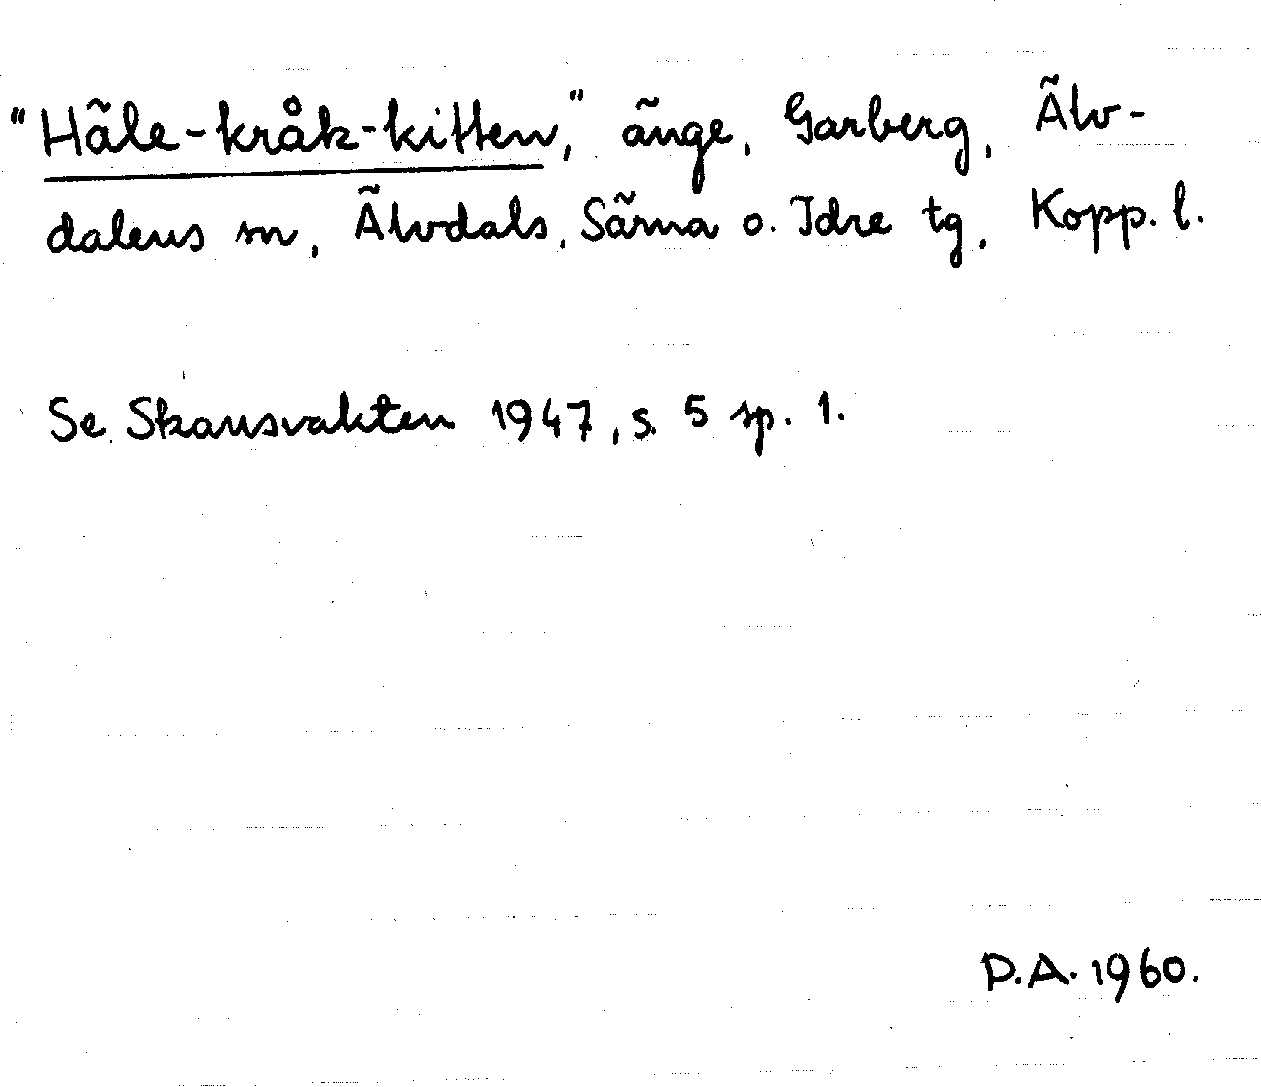 "Häle-kråk-kitten," änge, Garberg, Älv-
dalens sn, Älvdals, Särna o. Idre tg, Kopp. l.
Se Skansvakten 1947, s. 5 sp. 1.
D.A. 1960.